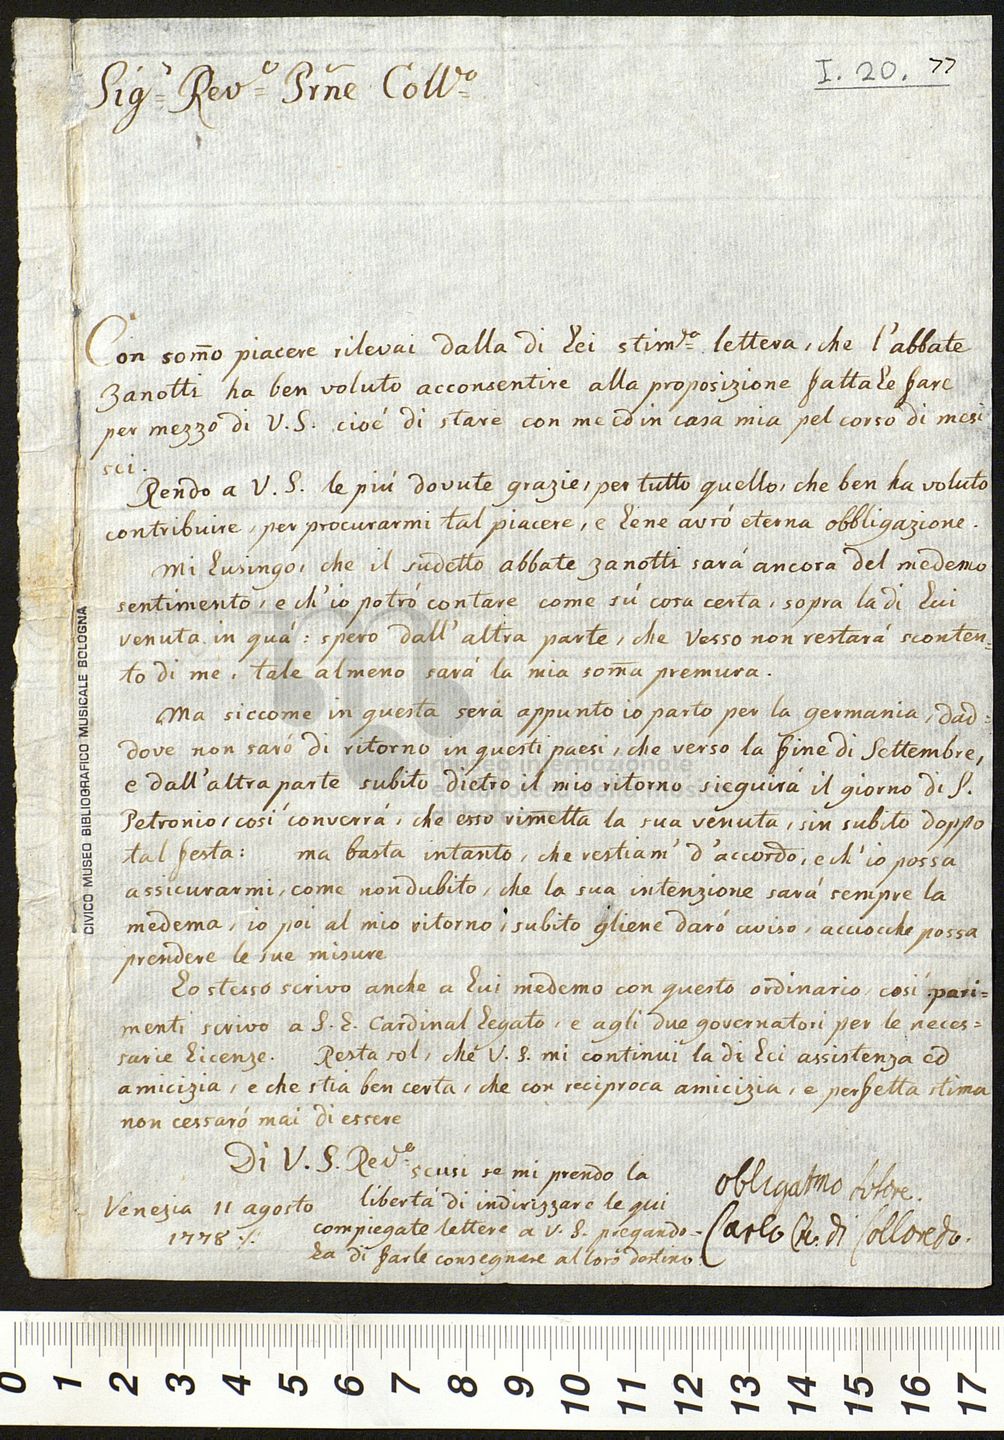 I. 20. 77
Sig.r Rev.o Prne Coll.mo
Con som̅o piacere rilevai dalla di Lei stim.ma lettera, che l'abbate
Zanotti ha ben voluto acconsentire alla proposizione fattaLe fare
per mezzo di V.S. cioé di stare con me ed in casa mia pel corso di mesi
sei.
Rendo a V. S. le piú dovute grazie, per tutto quello, che ben ha voluto
contribuire, per procurarmi tal piacere, e Lene avró eterna obbligazione.
Mi Lusingo, che il sudetto abbate Zanotti sará ancora del medemo
sentimento, e ch'io potró contare come sú cosa certa, sopra la di Lui
venuta in quá: spero dall'altra parte, che Vesso non restará sconten=
to di me, tale almeno sará la mia som̅a premura.
Ma siccome in questa sera appunto io parto per la germania, dad=
dove non saró di ritorno in questi paesi, che verso la fine di Settembre,
e dall'altra parte subito dietro il mio ritorno sieguirá il giorno di S.
Petronio, cosí converrá, che esso rim̅etta la sua venuta, sin subito doppo
tal festa: ma basta intanto, che restiam' d'accordo, e ch'io possa
assicurarmi, come non dubito, che la sua intenzione sará sempre la
medema, io poi al mio ritorno, subito gliene daró aviso, acciocche possa
prendere le sue misure
Lo stesso scrivo anche a Lui medemo con questo ordinario, cosí pari=
menti scrivo a S. E. Cardinal Legato, e agli due governatori per le neces=
sarie Licenze. Resta sol, ché V. S. mi continui la di Lei assistenza ed
amicizia, e che stia ben certa, che con reciproca amicizia, e perfetta stima
non cessaró mai di essere
Di V. S. Rev.o
scusi se mi prendo la
libertá di indirizzare le qui
compiegate lettere a V. S. pregando=
La di farle consegnare al loro destino.
Venezia 11 agosto
1778 ./.
obbligatmo
Carlo Co. di Colloredo.
CIVICO MUSEO BIBLIOGRAFICO MUSICALE BOLOGNA
museo internazionale
0 1 2 3 4 5 6 7 8 9 10 11 12 13 14 15 16 17